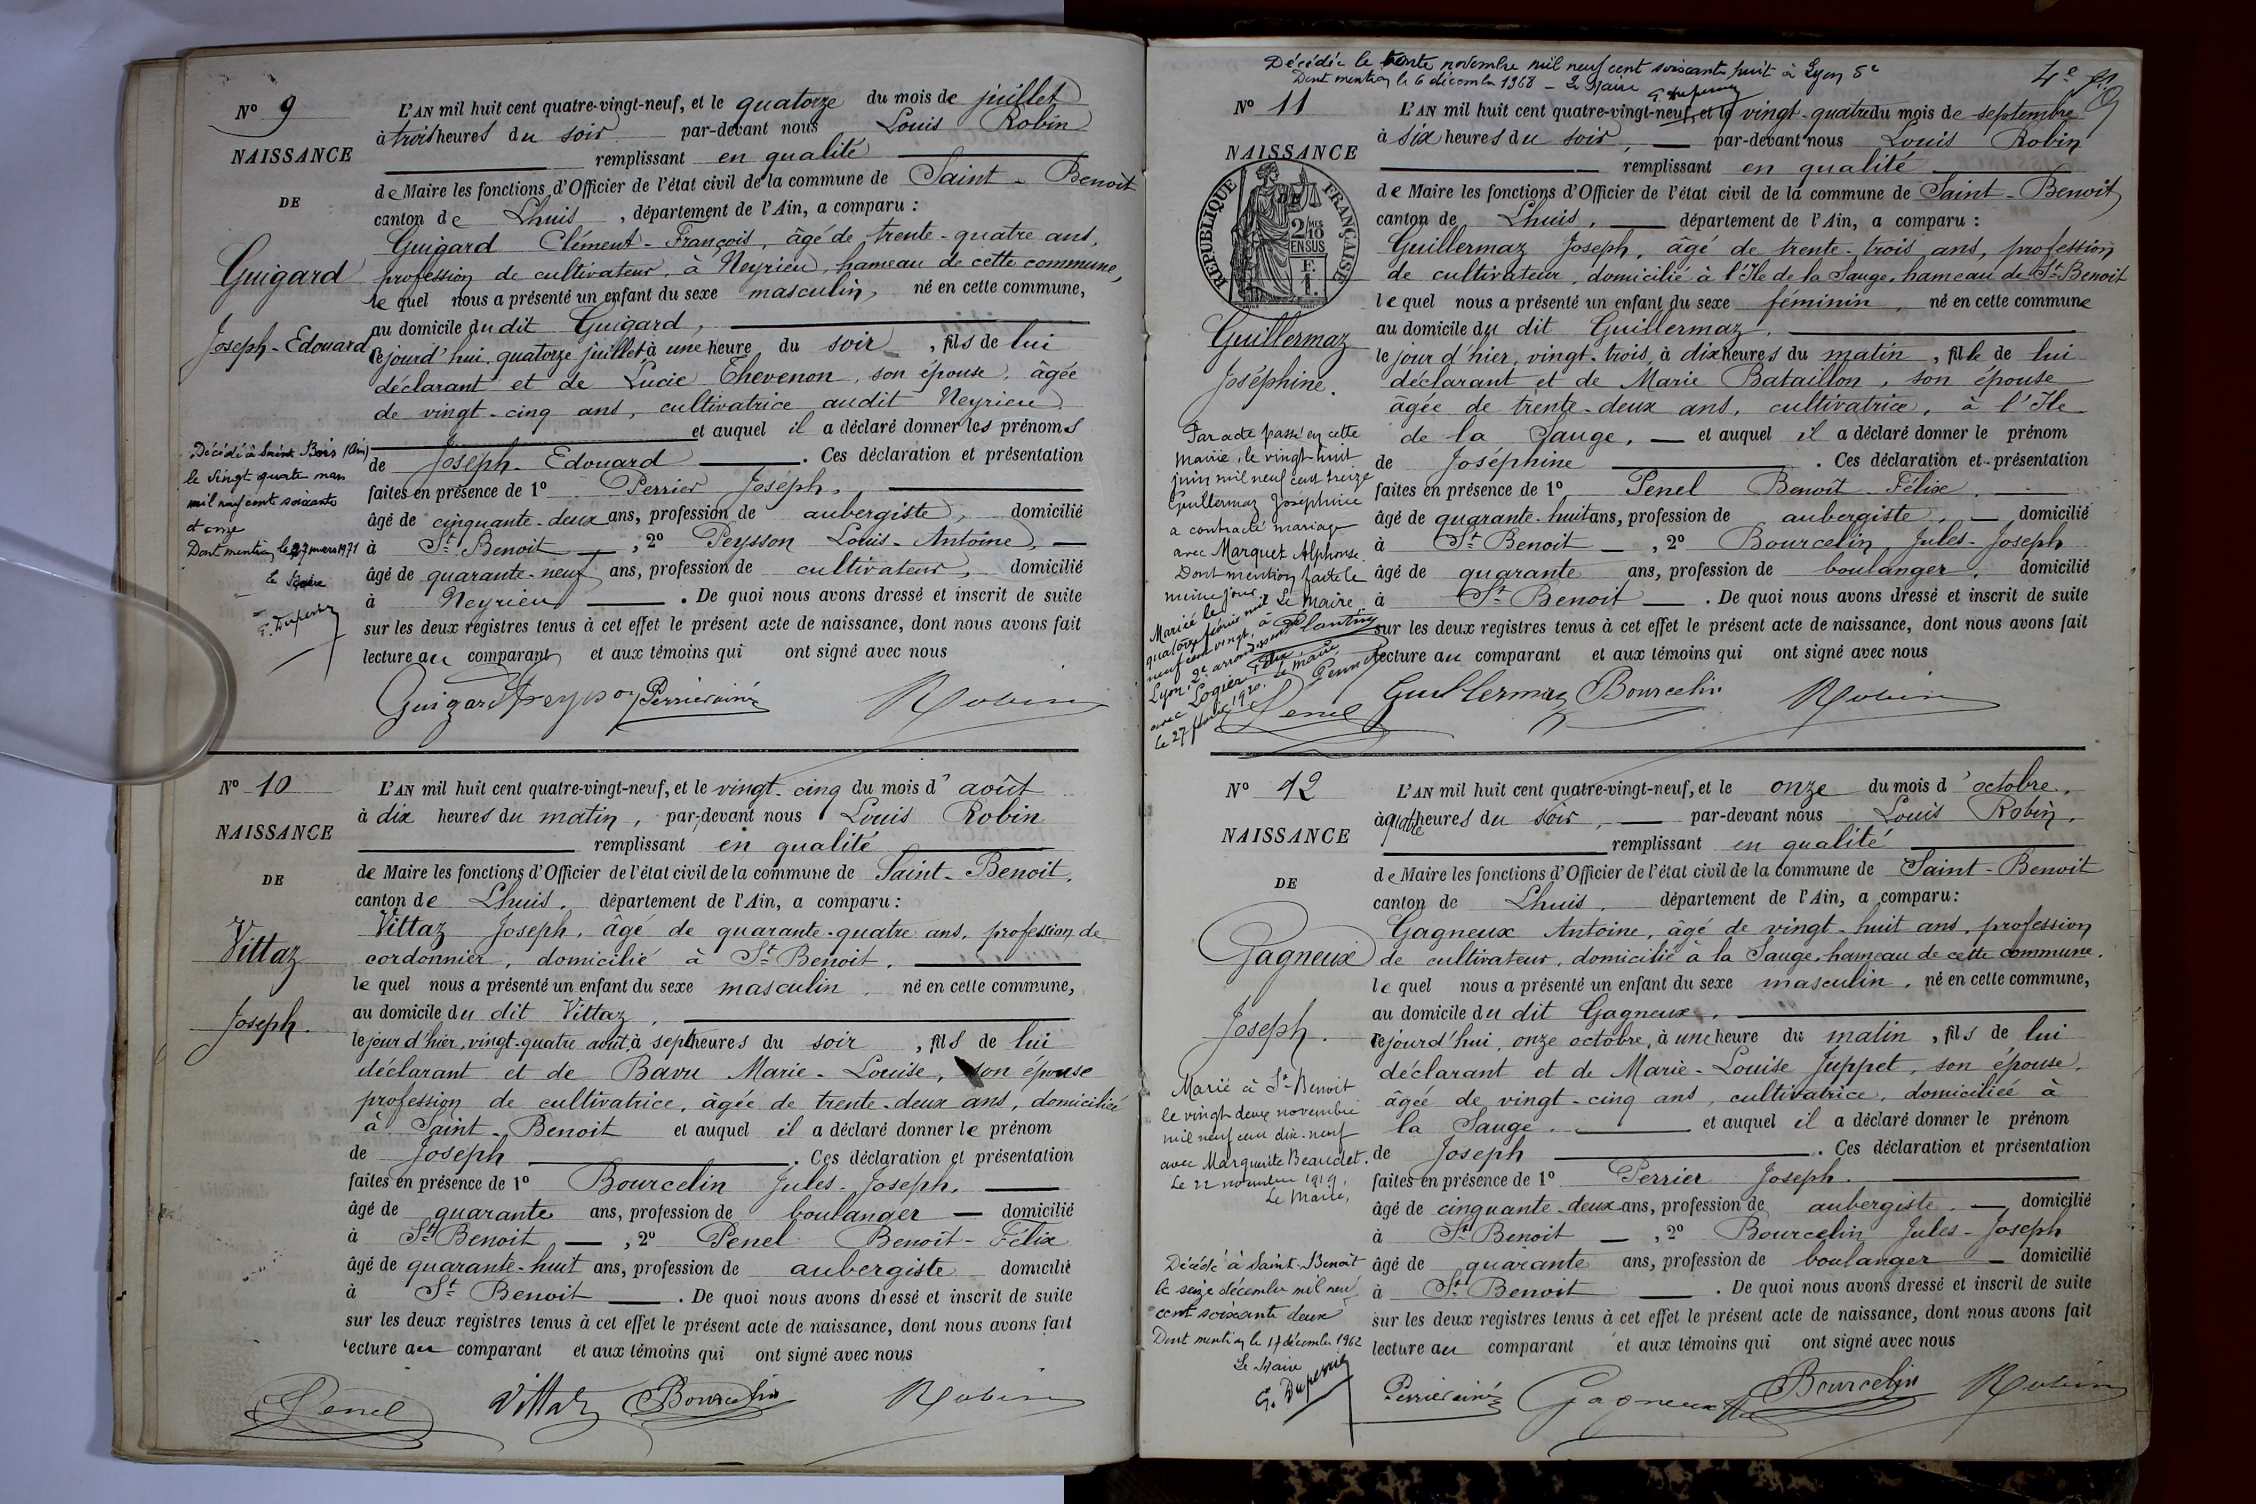 N° 9
NAISSANCE
DE
Guigard
Joseph-Edouard
L'AN mil huit cent quatre-vingt-neuf, et le quatorze du mois de juillet
à trois heures du soir par-devant nous Louis Robin
remplissant en qualité
de Maire les fonctions d'Officier de l'état civil de la commune de Saint-Benoit
canton de Lhuis, département de l'Ain, a comparu :
Guigard Clément-François, âgé de trente-quatre ans,
profession de cultivateur, à Neyrieu, hameau de cette commune,
le quel nous a présenté un enfant du sexe masculin, né en cette commune,
au domicile du dit Guigard,
cejourd'hui, quatorze juillet à une heure du soir, fils de lui
déclarant et de Lucie Thevenon, son épouse, âgée
de vingt-cinq ans, cultivatrice audit Neyrieu
et auquel il a déclaré donner les prénoms
de Joseph-Edouard. Ces déclaration et présentation
faites en présence de 1° Perrier Joseph,
âgé de cinquante-deux ans, profession de aubergiste, domicilié
à St Benoit, 2° Peysson Louis-Antoine,
âgé de quarante-neuf ans, profession de cultivateur, domicilié
à Neyrieu. De quoi nous avons dressé et inscrit de suite
sur les deux registres tenus à cet effet le présent acte de naissance, dont nous avons fait
lecture au comparant et aux témoins qui ont signé avec nous
Guigard Peysson Perrier ainé Robin
Décédé à Saint Bois (Ain)
le vingt quatre mars
mil neuf cent soixante
et onze
Dont mention le 27 mars 1971
Le Maire
G. Duperray
N° 10
NAISSANCE
DE
Vittaz
Joseph.
L'AN mil huit cent quatre-vingt-neuf, et le vingt-cinq du mois d'août
à dix heures du matin, par-devant nous Louis Robin
remplissant en qualité
de Maire les fonctions d'Officier de l'état civil de la commune de Saint-Benoit,
canton de Lhuis, département de l'Ain, a comparu :
Vittaz Joseph, âgé de quarante-quatre ans, profession de
cordonnier, domicilié à St Benoit,
le quel nous a présenté un enfant du sexe masculin, né en cette commune,
au domicile du dit Vittaz,
le jour d'hier, vingt-quatre août, à sept heures du soir, fils de lui
déclarant et de Bavu Marie-Louise, son épouse
profession de cultivatrice, âgée de trente-deux ans, domiciliée
à Saint-Benoit et auquel il a déclaré donner le prénom
de Joseph. Ces déclaration et présentation
faites en présence de 1° Bourcelin Jules-Joseph,
âgé de quarante ans, profession de boulanger domicilié
à St Benoit, 2° Penel Benoit-Félix
âgé de quarante-huit ans, profession de aubergiste domicilié
à St Benoit. De quoi nous avons dressé et inscrit de suite
sur les deux registres tenus à cet effet le présent acte de naissance, dont nous avons fait
lecture au comparant et aux témoins qui ont signé avec nous
Penel Vittaz Bourcelin Robin
Décédée le trente novembre mil neuf cent soixante huit à Lyon 5e
Dont mention le 6 décembre 1968 - Le Maire
G. Duperray
4e
N° 11
NAISSANCE
RÉPUBLIQUE FRANÇAISE
2/10 EN SUS
Guillermaz
Joséphine.
L'AN mil huit cent quatre-vingt-neuf, et le vingt-quatre du mois de septembre
à six heures du soir, par-devant nous Louis Robin
remplissant en qualité
de Maire les fonctions d'Officier de l'état civil de la commune de Saint-Benoit
canton de Lhuis, département de l'Ain, a comparu :
Guillermaz Joseph, âgé de trente-trois ans, profession
de cultivateur, domicilié à l'Ile de la Sauge, hameau de St-Benoit
le quel nous a présenté un enfant du sexe féminin, né en cette commune
au domicile du dit Guillermaz,
le jour d'hier, vingt-trois, à dix heures du matin, fille de lui
déclarant et de Marie Bataillon, son épouse
âgée de trente-deux ans, cultivatrice, à l'Ile
de la Sauge, et auquel il a déclaré donner le prénom
de Joséphine. Ces déclaration et présentation
faites en présence de 1° Penel Benoit-Félix,
âgé de quarante-huit ans, profession de aubergiste, domicilié
à St Benoit, 2° Bourcelin Jules-Joseph
âgé de quarante ans, profession de boulanger, domicilié
à St Benoit. De quoi nous avons dressé et inscrit de suite
sur les deux registres tenus à cet effet le présent acte de naissance, dont nous avons fait
lecture au comparant et aux témoins qui ont signé avec nous
Penel Guillermaz Bourcelin Robin
Par acte passé en cette
mairie, le vingt-huit
juin mil neuf cent treize
Guillermaz Joséphine
a contracté mariage
avec Marquet Alphonse.
Dont mention faite le
même jour. Le Maire
Mariée le
quatorze février mil
neuf cent vingt, à
Lyon 2e arrondissement
avec Logier Félix
le 27 février 1920. Le Maire
N° 12
NAISSANCE
DE
Gagneux
Joseph.
L'AN mil huit cent quatre-vingt-neuf, et le onze du mois d'octobre,
à quatre heures du soir, par-devant nous Louis Robin,
remplissant en qualité
de Maire les fonctions d'Officier de l'état civil de la commune de Saint-Benoit
canton de Lhuis, département de l'Ain, a comparu :
Gagneux Antoine, âgé de vingt-huit ans, profession
de cultivateur, domicilié à la Sauge, hameau de cette commune.
le quel nous a présenté un enfant du sexe masculin, né en cette commune,
au domicile du dit Gagneux,
cejourd'hui, onze octobre, à une heure du matin, fils de lui
déclarant et de Marie-Louise Juppet, son épouse,
âgée de vingt-cinq ans, cultivatrice, domiciliée à
la Sauge. et auquel il a déclaré donner le prénom
de Joseph. Ces déclaration et présentation
faites en présence de 1° Perrier Joseph.
âgé de cinquante-deux ans, profession de aubergiste, domicilié
à St Benoit, 2° Bourcelin Jules-Joseph
âgé de quarante ans, profession de boulanger domicilié
à St Benoit. De quoi nous avons dressé et inscrit de suite
sur les deux registres tenus à cet effet le présent acte de naissance, dont nous avons fait
lecture au comparant et aux témoins qui ont signé avec nous
Perrier ainé Gagneux Bourcelin Robin
Marié à St-Benoit
le vingt deux novembre
mil neuf cent dix-neuf
avec Marguerite Beaudet.
Le 22 novembre 1919,
Le Maire,
Décédé à Saint-Benoit
le seize décembre mil neuf
cent soixante deux
Dont mention le 17 décembre 1962
Le Maire
G. Duperray